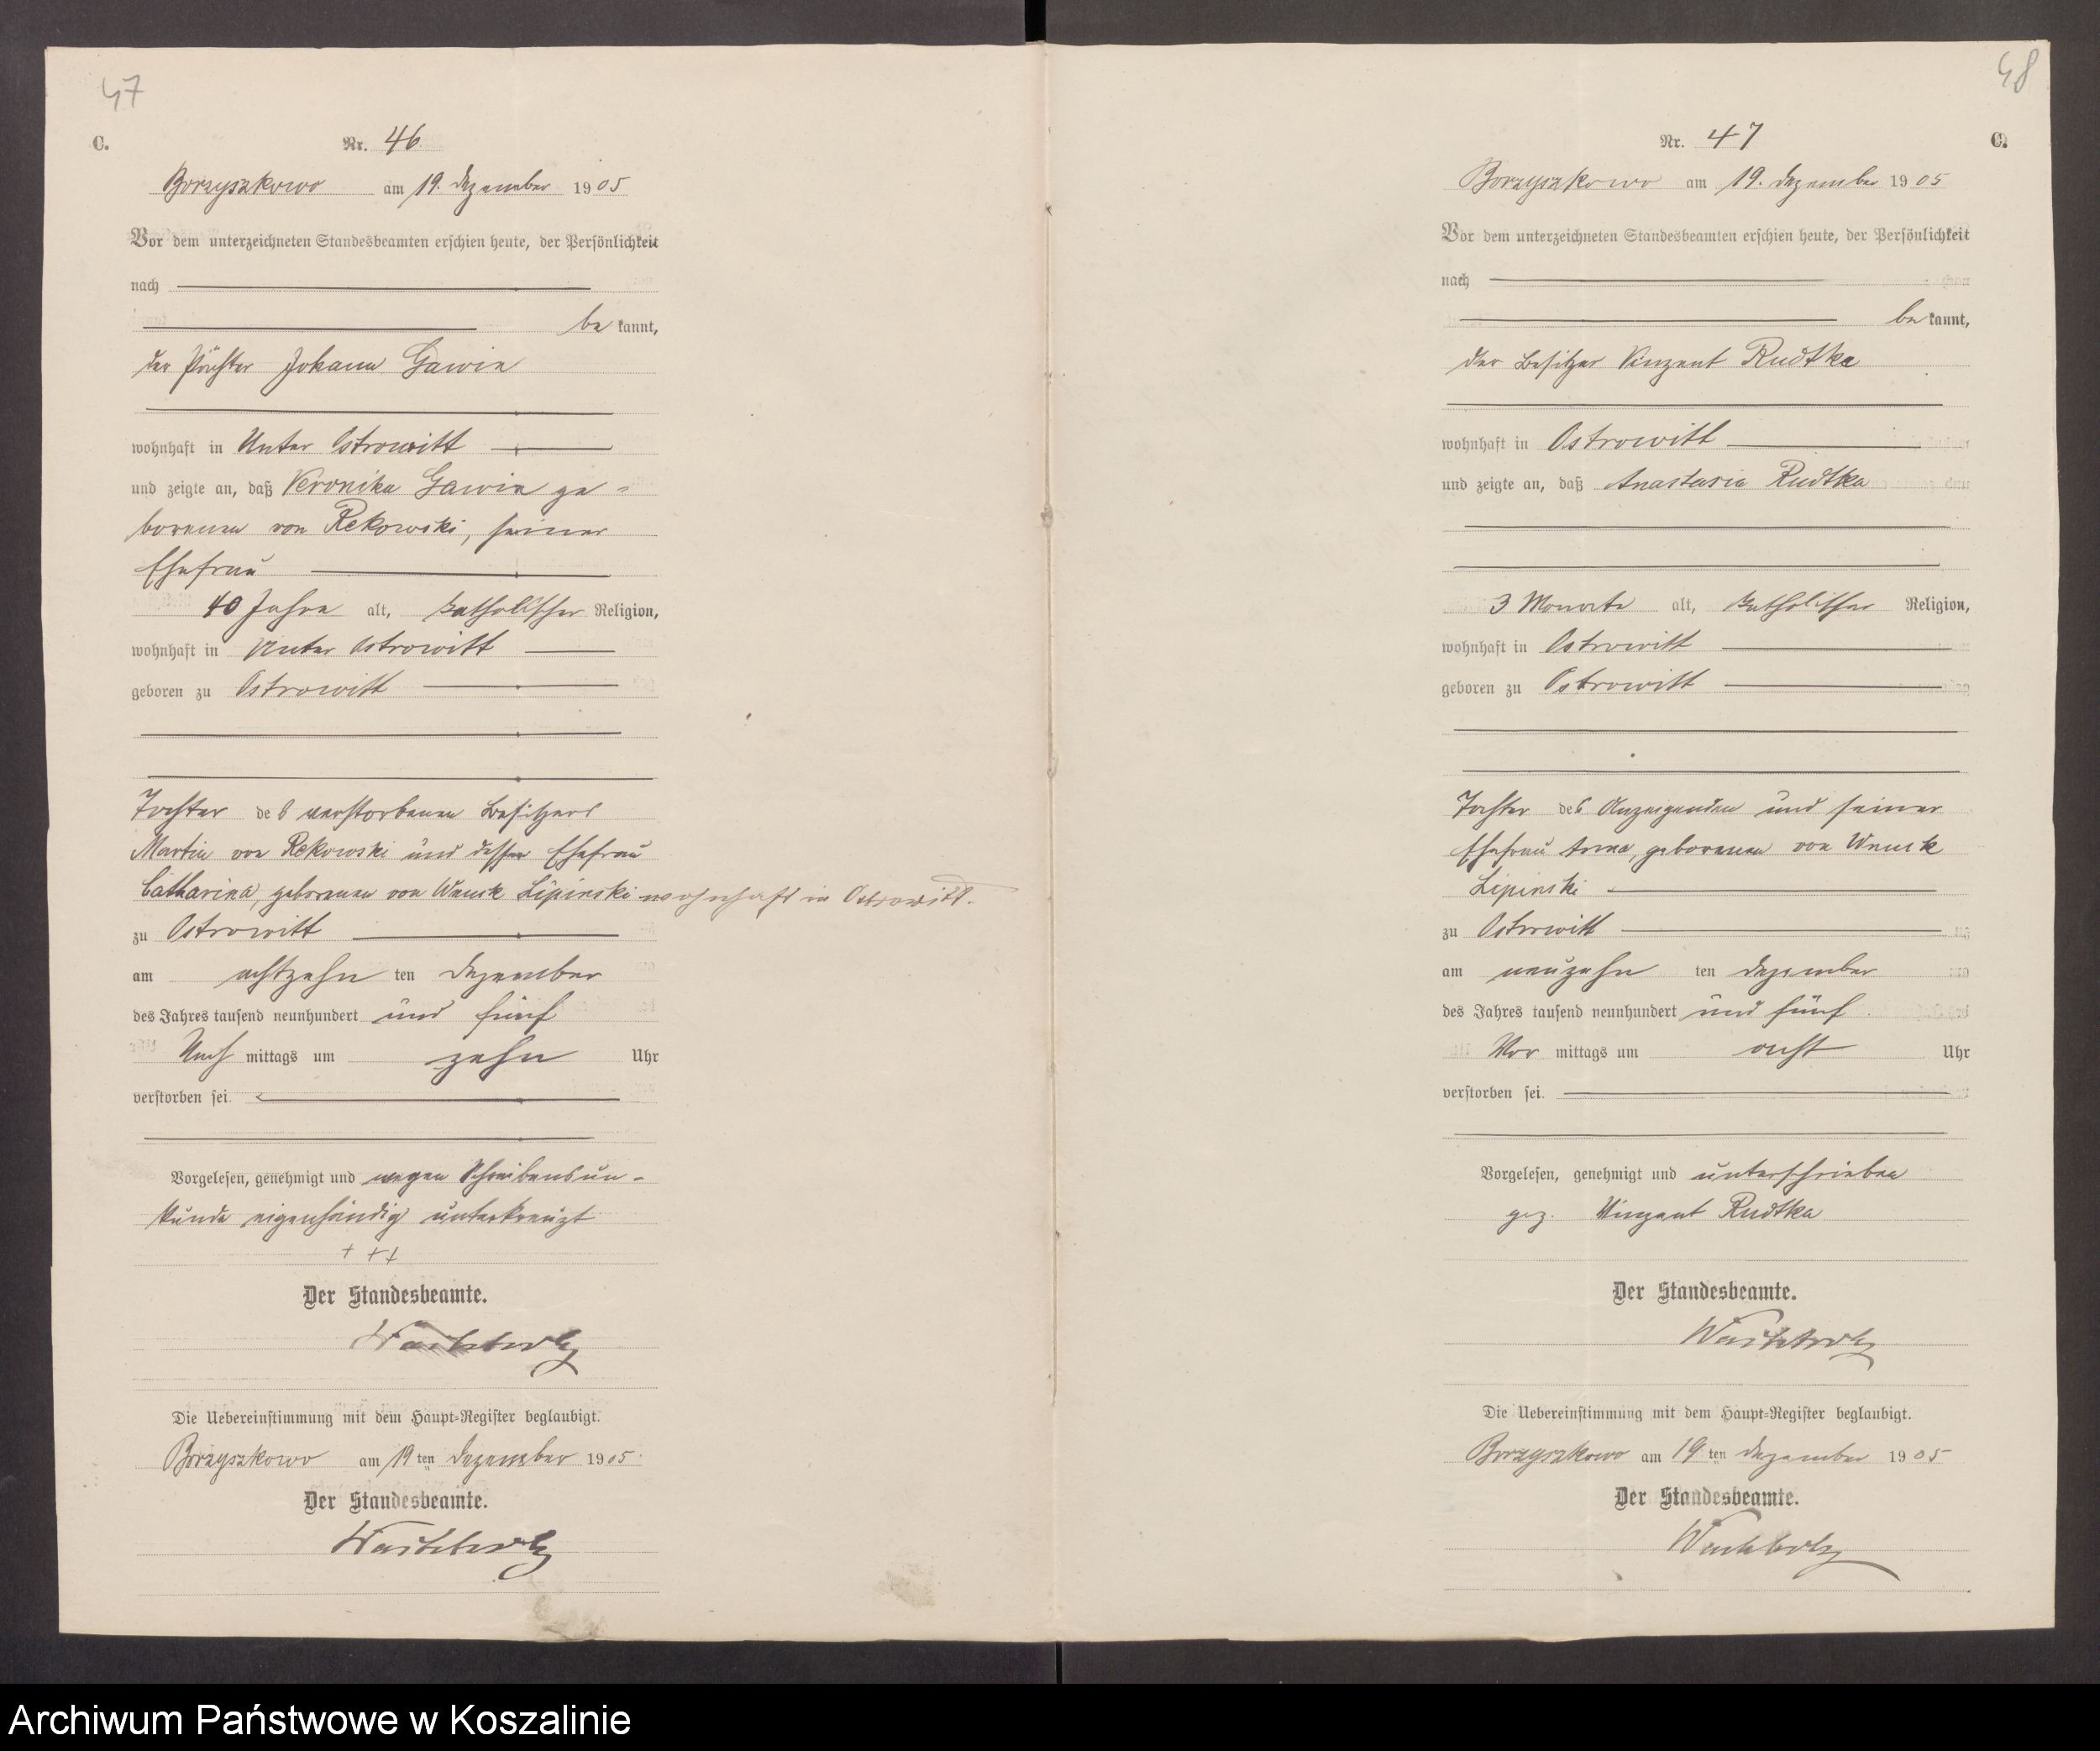 47
C.
Nr. 46
Borzyszkowo am 19. Dezember 1905
Vor dem unterzeichneten Standesbeamten erschien heute, der Persönlichkeit
nach
be kannt,
der Pächter Johann Gawin
wohnhaft in Unter Ostrowitt
und zeigte an, daß Veronika Gawin ge=
borenen von Rekowski, seiner
Ehefrau
40 Jahre alt, katholischer Religion,
wohnhaft in Unter Ostrowitt
geboren zu Ostrowitt
Tochter des verstorbenen Besitzers
Martin von Rekowski und dessen Ehefrau
Catharina, geborenen von Wnuck Lipinski wohnhaft in Ostrowitt.
zu Ostrowitt
am achtzehn ten Dezember
des Jahres tausend neunhundert und fünf
Nach mittags um zehn Uhr
verstorben sei.
Vorgelesen, genehmigt und wegen Schreibensun-
kunde eigenhändig unterkreuzt
+ + +
Der Standesbeamte.
Die Uebereinstimmung mit dem Haupt=Register beglaubigt.
Borzyszkowo am 19 ten Dezember 1905.
Der Standesbeamte.
48
C.
Nr. 47
Borzyszkowo am 19. Dezember 1905
Vor dem unterzeichneten Standesbeamten erschien heute, der Persönlichkeit
nach
be kannt,
der Besitzer Vinzent Rudtka
wohnhaft in Ostrowitt
und zeigte an, daß Anastasia Rudtka
3 Monate alt, katholischer Religion,
wohnhaft in Ostrowitt
geboren zu Ostrowitt
Tochter des Anzeigenden und seiner
Ehefrau Anna, geborenen von Wnuck
Lipinski
zu Ostrowitt
am neunzehn ten Dezember
des Jahres tausend neunhundert und fünf
Vor mittags um acht Uhr
verstorben sei.
Vorgelesen, genehmigt und unterschrieben
gez. Vinzent Rudtka
Der Standesbeamte.
Die Uebereinstimmung mit dem Haupt=Register beglaubigt.
Borzyszkowo am 19 ten Dezember 1905
Der Standesbeamte.
Archiwum Państwowe w Koszalinie